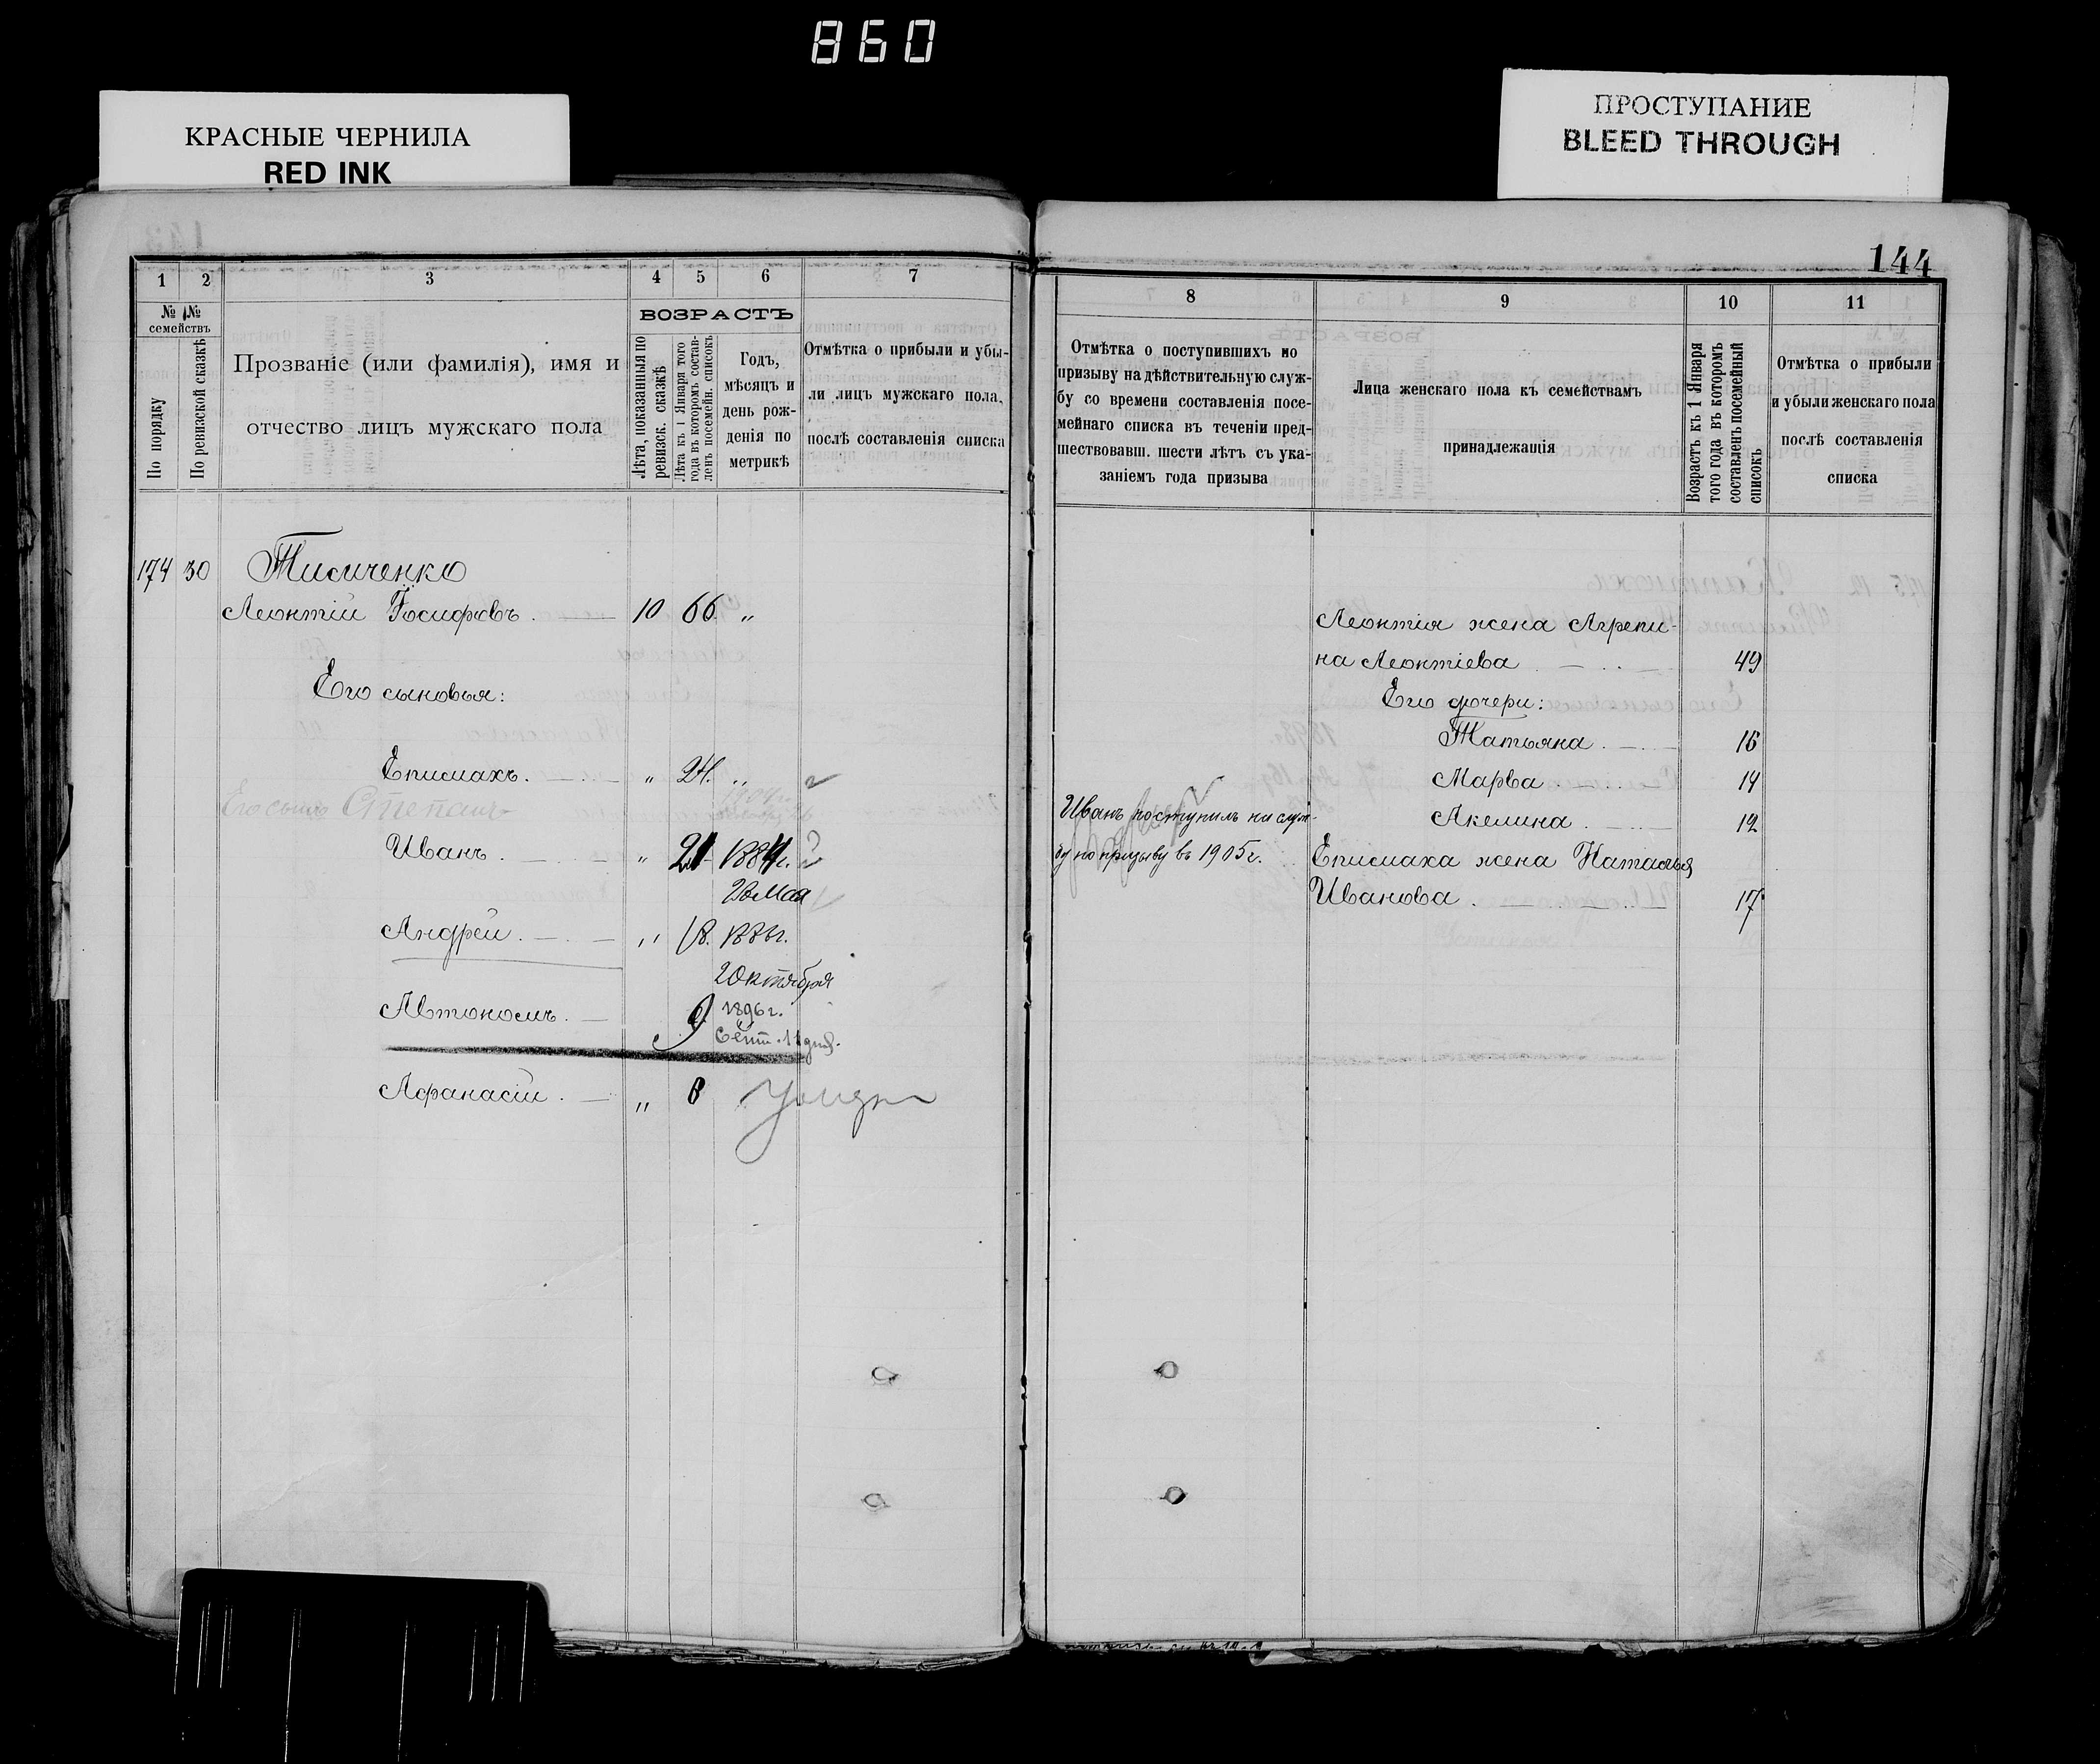 860
КРАСНЫЕ ЧЕРНИЛА
RED INK
ПРОСТУПАНИЕ
BLEED THROUGH
144
1 2 3 4 5 6 7
№ №
семействъ
По порядку
По ревизской сказкѣ
Прозваніе (или фамилія), имя и
отчество лицъ мужскаго пола
ВОЗРАСТЪ
Лѣта, показанныя по
ревизск. сказкѣ
Лѣта къ 1 Января того
года въ которомъ состав-
ленъ посемейн. списокъ
Годъ,
мѣсяцъ и
день рож-
денія по
метрикѣ
Отмѣтка о прибыли и убы-
ли лицъ мужскаго пола,
послѣ составленія списка
174 30 Тисиченко
Леонтій Іосифовъ. 10 66 „
Его сыновья:
Еписмахъ. „ 24. „
Его сынъ Степанъ 1904 г.
Иванъ. „ 21 1884 г.
23 Мая
Андрей. „ 18. 1886 г.
2 Октября
Автономъ. 9 1896 г.
Сент. 11 дня.
Афанасій. „ 8
8 9 10 11
Отмѣтка о поступившихъ по
призыву на дѣйствительную служ-
бу со времени составленія посе-
мейнаго списка въ теченіи пред-
шествовавш. шести лѣтъ съ ука-
заніемъ года призыва
Лица женскаго пола къ семействамъ
принадлежащія
Возрастъ къ 1 Января
того года въ которомъ
составленъ посемейный
списокъ
Отмѣтка о прибыли
и убыли женскаго пола
послѣ составленія
списка
Леонтія жена Агрепи-
на Леонтіева 49
Его дочери:
Татьяна. 16
Марва 14
Акелина. 12
Иванъ поступилъ на служ-
бу по призыву въ 1905 г.
Еписмаха жена Наталья
Иванова. 17